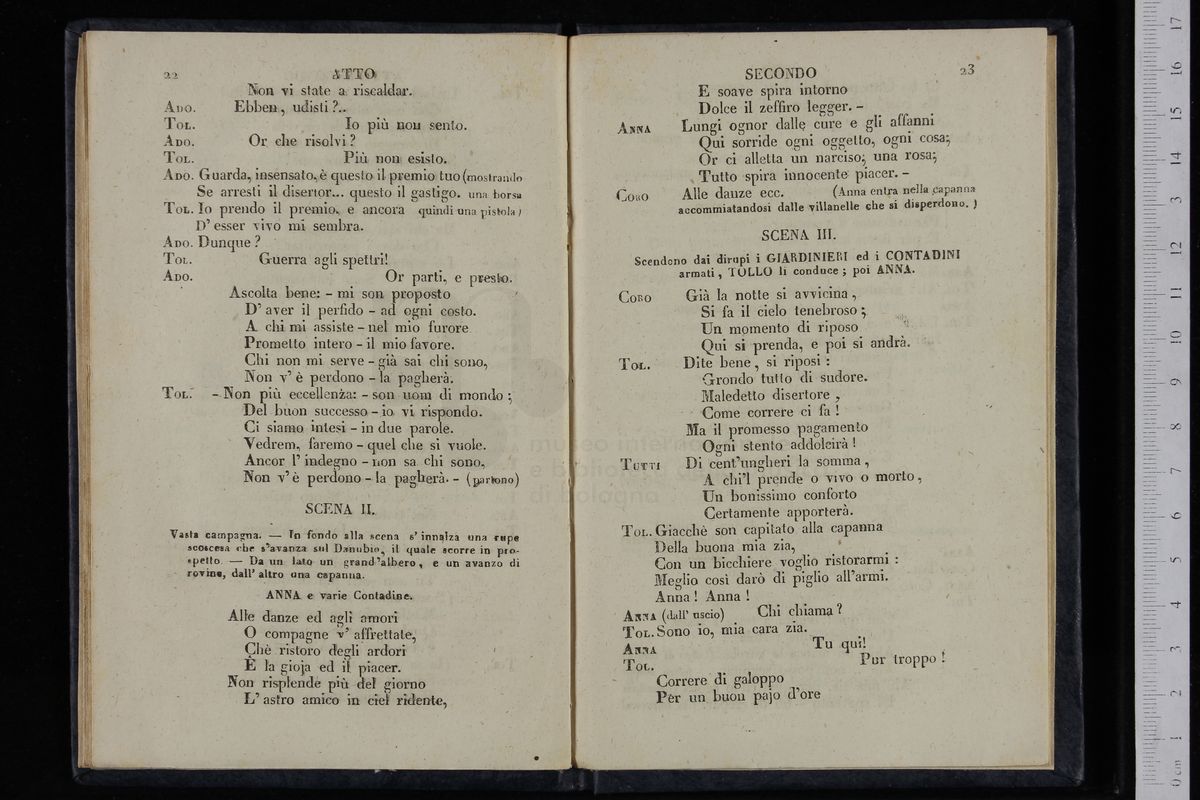 22 ATTO
Non vi state a riscaldar.
ADO. Ebben, udisti?..
TOL. Io più non sento.
ADO. Or che risolvi?
TOL. Più non esisto.
ADO. Guarda, insensato, è questo il premio tuo (mostrando
Se arresti il disertor... questo il gastigo. una borsa
TOL. Io prendo il premio, e ancora quindi una pistola)
D' esser vivo mi sembra.
ADO. Dunque?
TOL. Guerra agli spettri!
ADO. Or parti, e presto.
Ascolta bene: - mi son proposto
D' aver il perfido - ad ogni costo.
A chi mi assiste - nel mio furore
Prometto intero - il mio favore.
Chi non mi serve - già sai chi sono,
Non v' è perdono - la pagherà.
TOL. - Non più eccellenza: - son uom di mondo;
Del buon successo - io vi rispondo.
Ci siamo intesi - in due parole.
Vedrem, faremo - quel che si vuole.
Ancor l' indegno - non sa chi sono,
Non v' è perdono - la pagherà. - (partono)
SCENA II.
Vasta campagna. — In fondo alla scena s' innalza una rupe
scoscesa che s'avanza sul Danubio, il quale scorre in pro-
spetto. — Da un lato un grand'albero, e un avanzo di
rovine, dall' altro una capanna.
ANNA e varie Contadine.
Alle danze ed agli amori
O compagne v' affrettate,
Chè ristoro degli ardori
È la gioja ed il piacer.
Non risplende più del giorno
L' astro amico in ciel ridente,
SECONDO 23
E soave spira intorno
Dolce il zeffiro legger. -
ANNA Lungi ognor dalle cure e gli affanni
Qui sorride ogni oggetto, ogni cosa;
Or ci alletta un narciso; una rosa;
Tutto spira innocente piacer. -
CORO Alle danze ecc. (Anna entra nella capanna
accommiatandosi dalle villanelle che si disperdono.)
SCENA III.
Scendono dai dirupi i GIARDINIERI ed i CONTADINI
armati, TOLLO li conduce; poi ANNA.
CORO Già la notte si avvicina,
Si fa il cielo tenebroso;
Un momento di riposo
Qui si prenda, e poi si andrà.
TOL. Dite bene, si riposi:
Grondo tutto di sudore.
Maledetto disertore,
Come correre ci fa!
Ma il promesso pagamento
Ogni stento addolcirà!
TUTTI Di cent'ungheri la somma,
A chi'l prende o vivo o morto,
Un bonissimo conforto
Certamente apporterà.
TOL. Giacchè son capitato alla capanna
Della buona mia zia,
Con un bicchiere voglio ristorarmi:
Meglio così darò di piglio all'armi.
Anna! Anna!
ANNA (dall' uscio) Chi chiama?
TOL. Sono io, mia cara zia.
ANNA Tu qui!
TOL. Pur troppo!
Correre di galoppo
Per un buon pajo d'ore
museo inter
e biblio
di bologna
0 cm 1 2 3 4 5 6 7 8 9 10 11 12 13 14 15 16 17